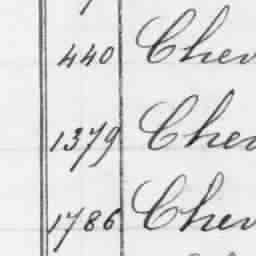 440 Chev
1379 Chev
1786 Chev